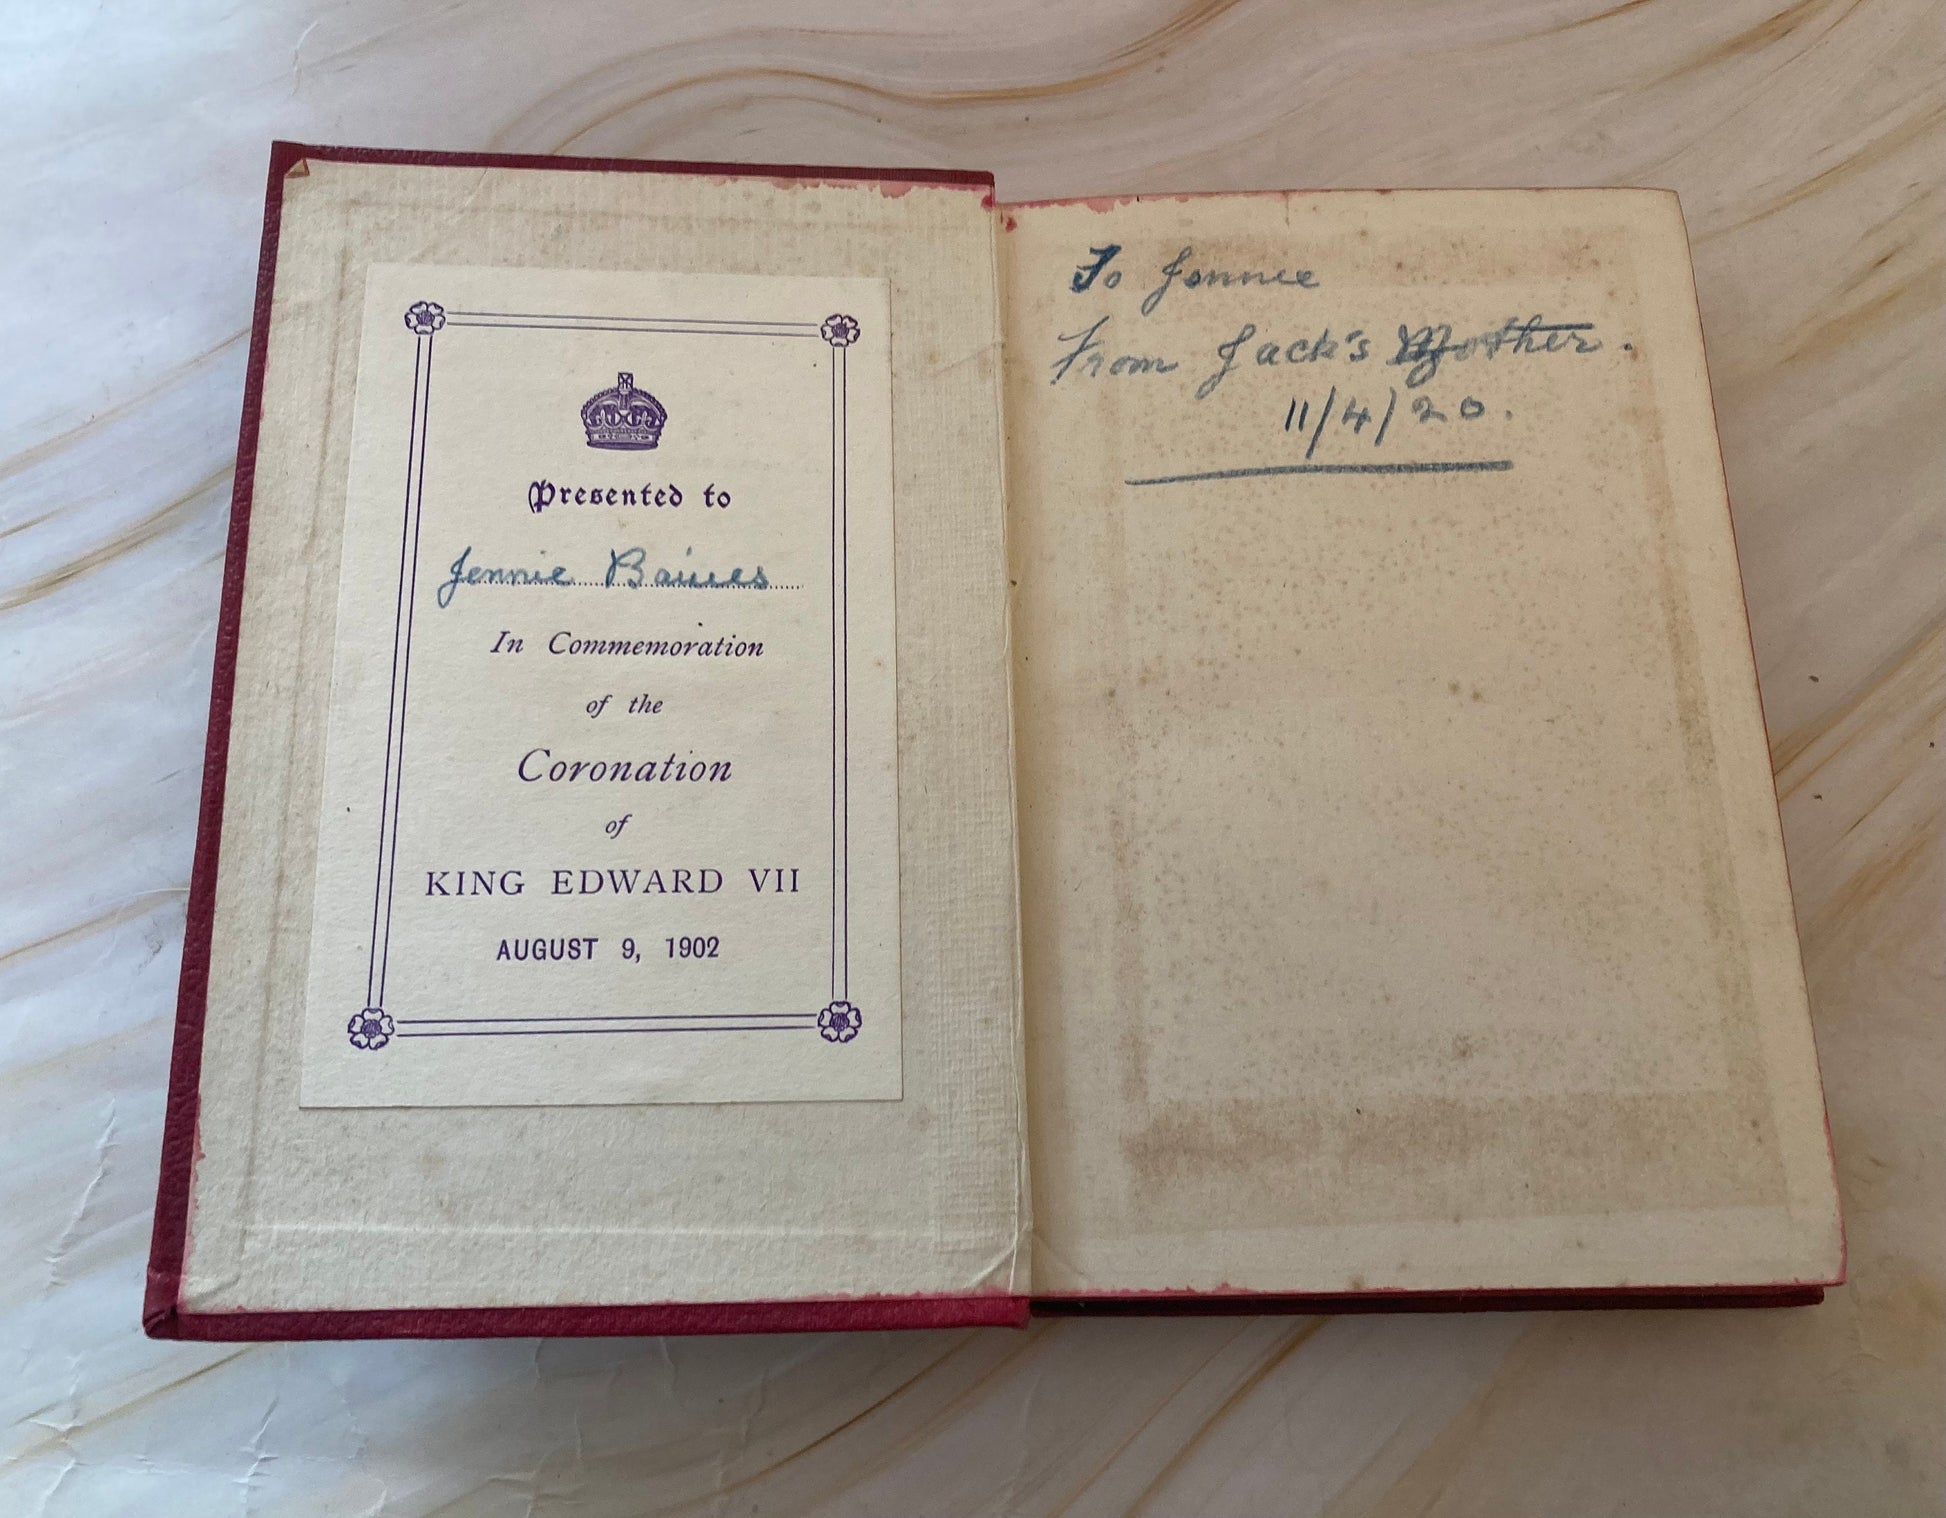 Presented to
Jennie Baines
In Commemoration
of the
Coronation
of
KING EDWARD VII
AUGUST 9, 1902
To Jennie
From Jack's Mother.
11/4/20.